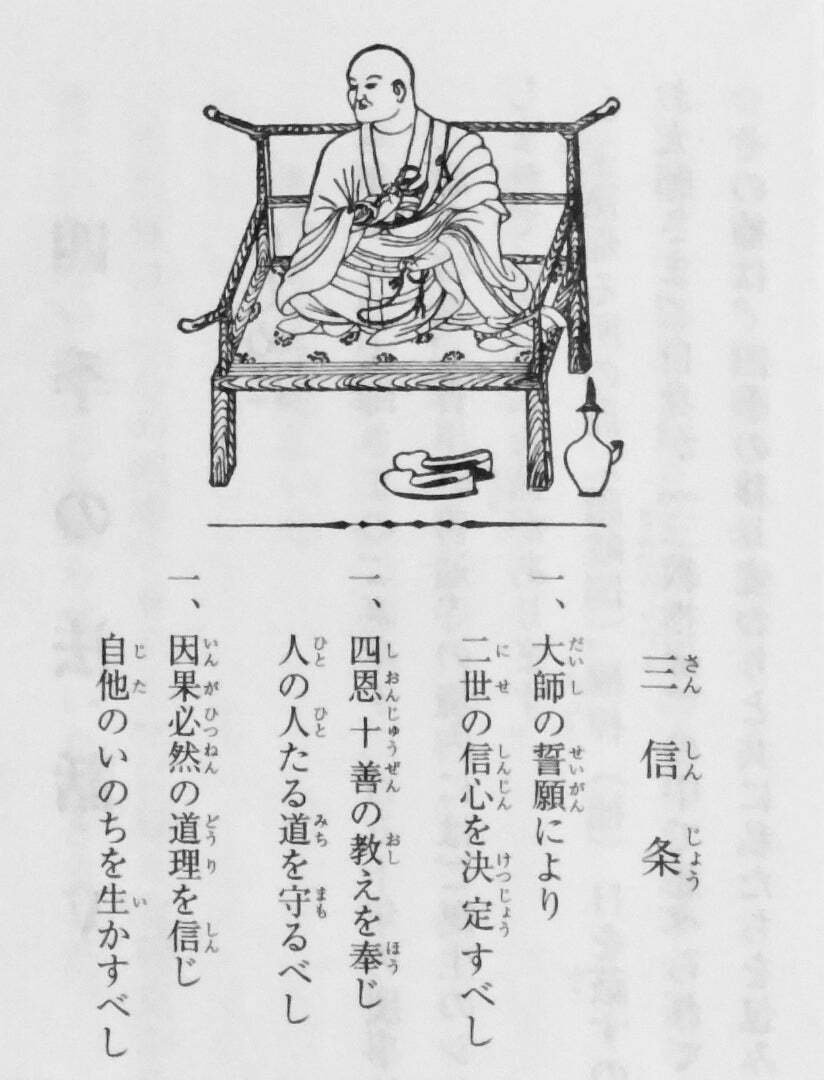 三信条
一、大師の誓願により
二世の信心を決定すべし
一、四恩十善の教えを奉じ
人の人たる道を守るべし
一、因果必然の道理を信じ
自他のいのちを生かすべし